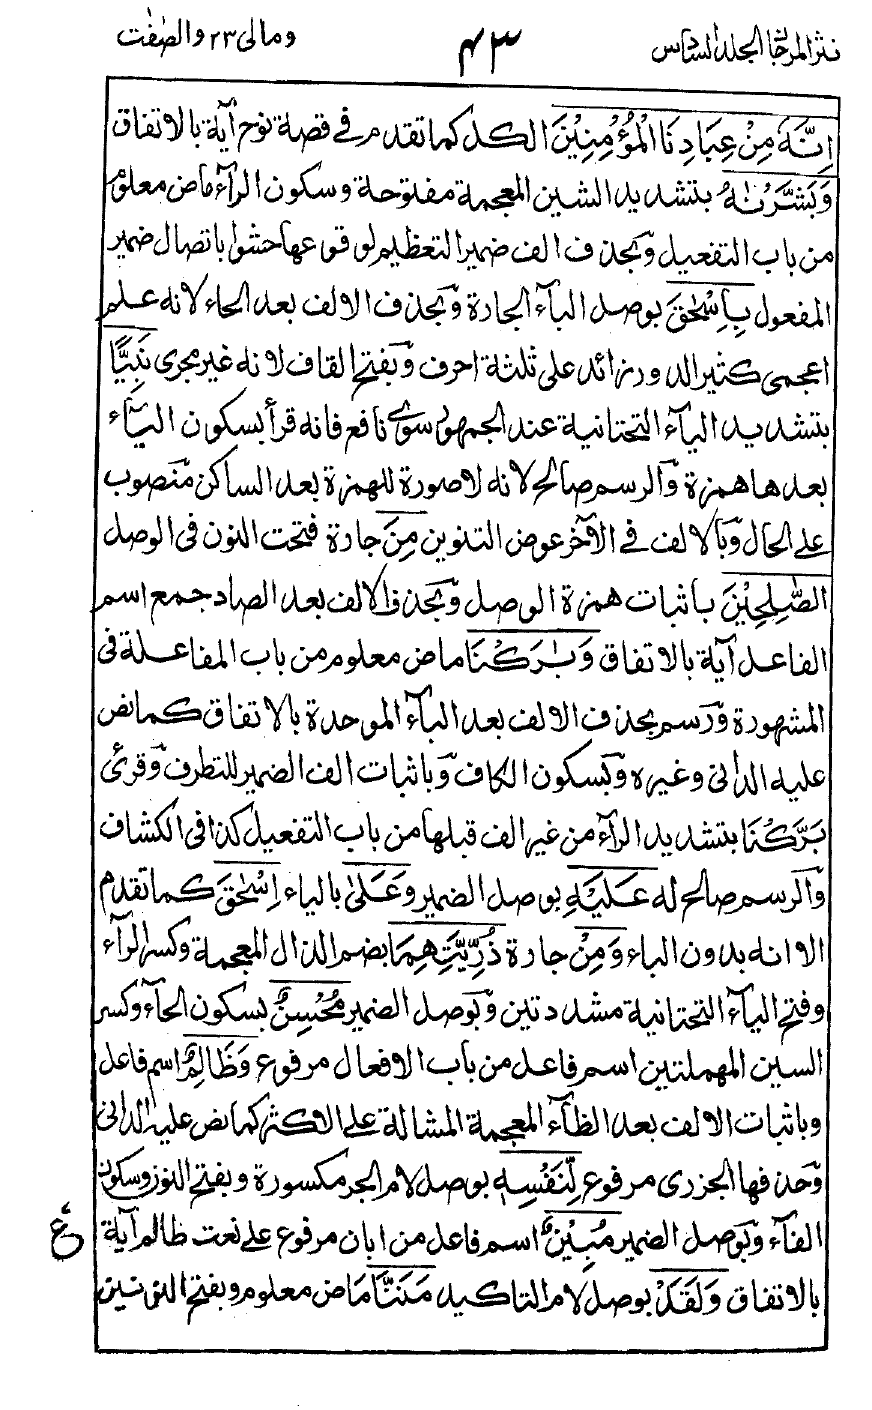 نثر المرجان الجلد السادس
٤٣
ومالی ٢٣ والصّٰفّٰت
اِنَّهٗ مِنْ عِبَادِنَا الْمُؤْمِنِيْنَ الكل كما تقدم فی قصة نوح آية بالاتفاق
وَبَشَّرْنٰهُ بتشديد الشين المعجمة مفتوحة وسكون الرآء ماض معلوم
من باب التفعيل وبحذف الف ضمير التعظيم لوقوعها حشوا باتصال ضمير
المفعول بِاِسْحٰقَ بوصل البآء الجارة وبحذف الالف بعد الحاء لانه علم
اعجمی كثير الدور زائد علی ثلثة احرف وبفتح القاف لانه غير مجری نَبِيًّا
بتشديد اليآء التحتانية عند الجمهور سوی نافع فانه قرأ بسكون اليآء
بعدها همزة والرسم صالح لانه لا صورة للهمزة بعد الساكن منصوب
علی الحال وبالالف فی الآخر عوض التنوين مِنَ جارة فتحت النون فی الوصل
الصّٰلِحِيْنَ باثبات همزة الوصل وبحذف الالف بعد الصاد جمع اسم
الفاعل آية بالاتفاق وَبٰرَكْنَا ماض معلوم من باب المفاعلة فی
المشهورة ورسم بحذف الالف بعد البآء الموحدة بالاتفاق كما نص
عليه الدانی وغيره وبسكون الكاف وباثبات الف الضمير للتطرف وقرئ
بَرَّكْنَا بتشديد الرآء من غير الف قبلها من باب التفعيل كذا فی الكشاف
والرسم صالح له عَلَيْهِ بوصل الضمير وَعَلٰی بالياء اِسْحٰقَ كما تقدم
الا انه بدون الباء وَمِنْ جارة ذُرِّيَّتِهِمَا بضم الذال المعجمة وكسر الرآء
وفتح اليآء التحتانية مشددتين وبوصل الضمير مُحْسِنٌ بسكون الحآء وكسر
السين المهملتين اسم فاعل من باب الافعال مرفوع وَظَالِمٌ اسم فاعل
وباثبات الالف بعد الظآء المعجمة المشالة علی الاكثر كما نص عليه الدانی
وحذفها الجزری مرفوع لِّنَفْسِهٖ بوصل لام الجر مكسورة وبفتح النون وسكون
الفآء وبوصل الضمير مُبِيْنٌ اسم فاعل من ابان مرفوع علی نعت ظالم آية
بالاتفاق وَلَقَدْ بوصل لام التاكيد مَنَنَّا ماض معلوم وبفتح النونين
ع